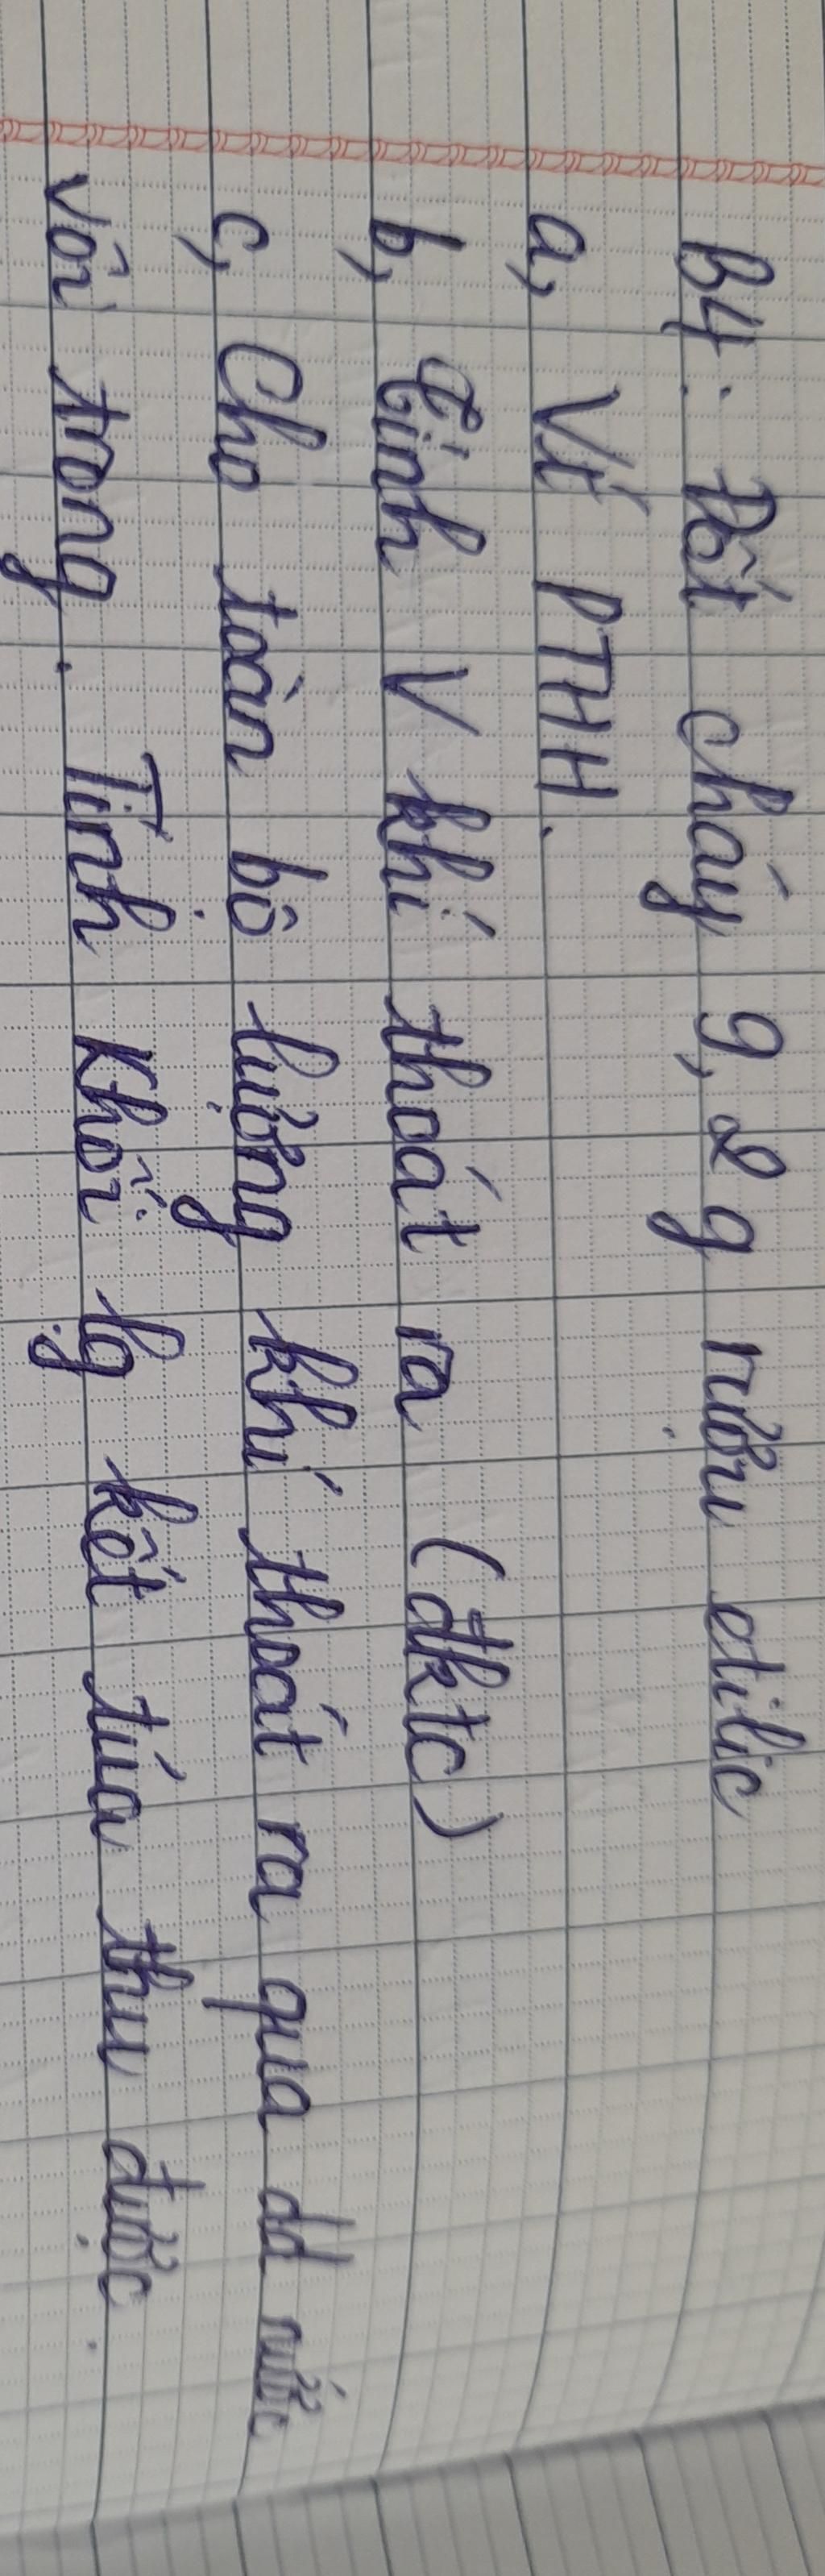 B4: Đốt cháy 9,2 g rượu etilic
a, Vt PTHH.
b, Tính V khí thoát ra (đktc)
c, Cho toàn bộ lượng khí thoát ra qua dd nước
vôi trong. Tính khối lg kết tủa thu được.